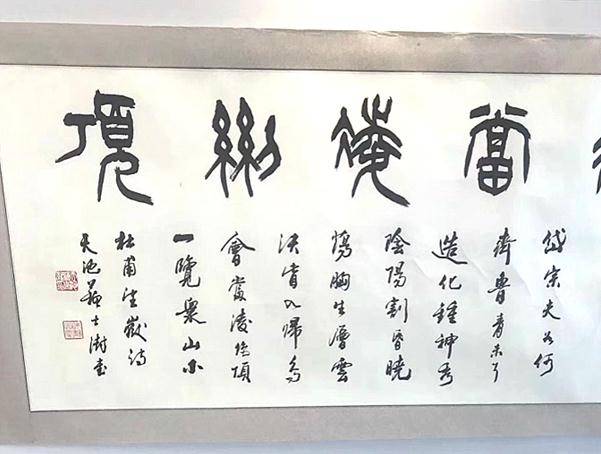 當凌絕頂
岱宗夫如何
齊魯青未了
造化鍾神秀
陰陽割昏曉
蕩胸生層雲
決眥入歸鳥
會當凌絕頂
一覽衆山小
杜甫望嶽詩
天池蘇士澍書